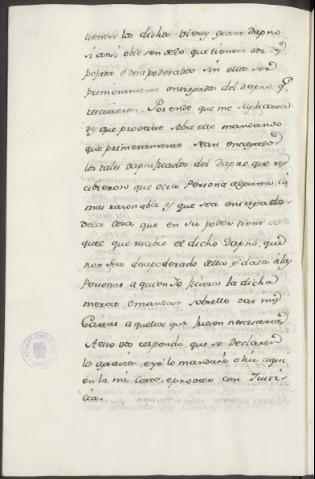 tienen los dichos vienes gran dapno
si ansi obiesen de lo que tienen ser des
pojados é desapoderados sin ellos ser
primeramente entregados del dapno qe
rescivieron. Por ende que me suplicava
des que proveiese sobre ello mandando
que primeramente sean entregados
los tales dapnificados del dapno que res
cibieron que otra Persona alguna
mas razonable es que sea entregado
de la cosa que en su poder tiene a
quel que recibio el dicho dapno, que
non sea desapoderado della é dada á las
Personas a quien Yo ficiera la dicha
merced é mandar sobrello dar mis
Cartas a aquellas que fuesen necesarias,
A esto vos respondo que se declaren
los agravios, e yo lo mandaré oir aqui
en la mi Corte, e proveer con Justi
cia.